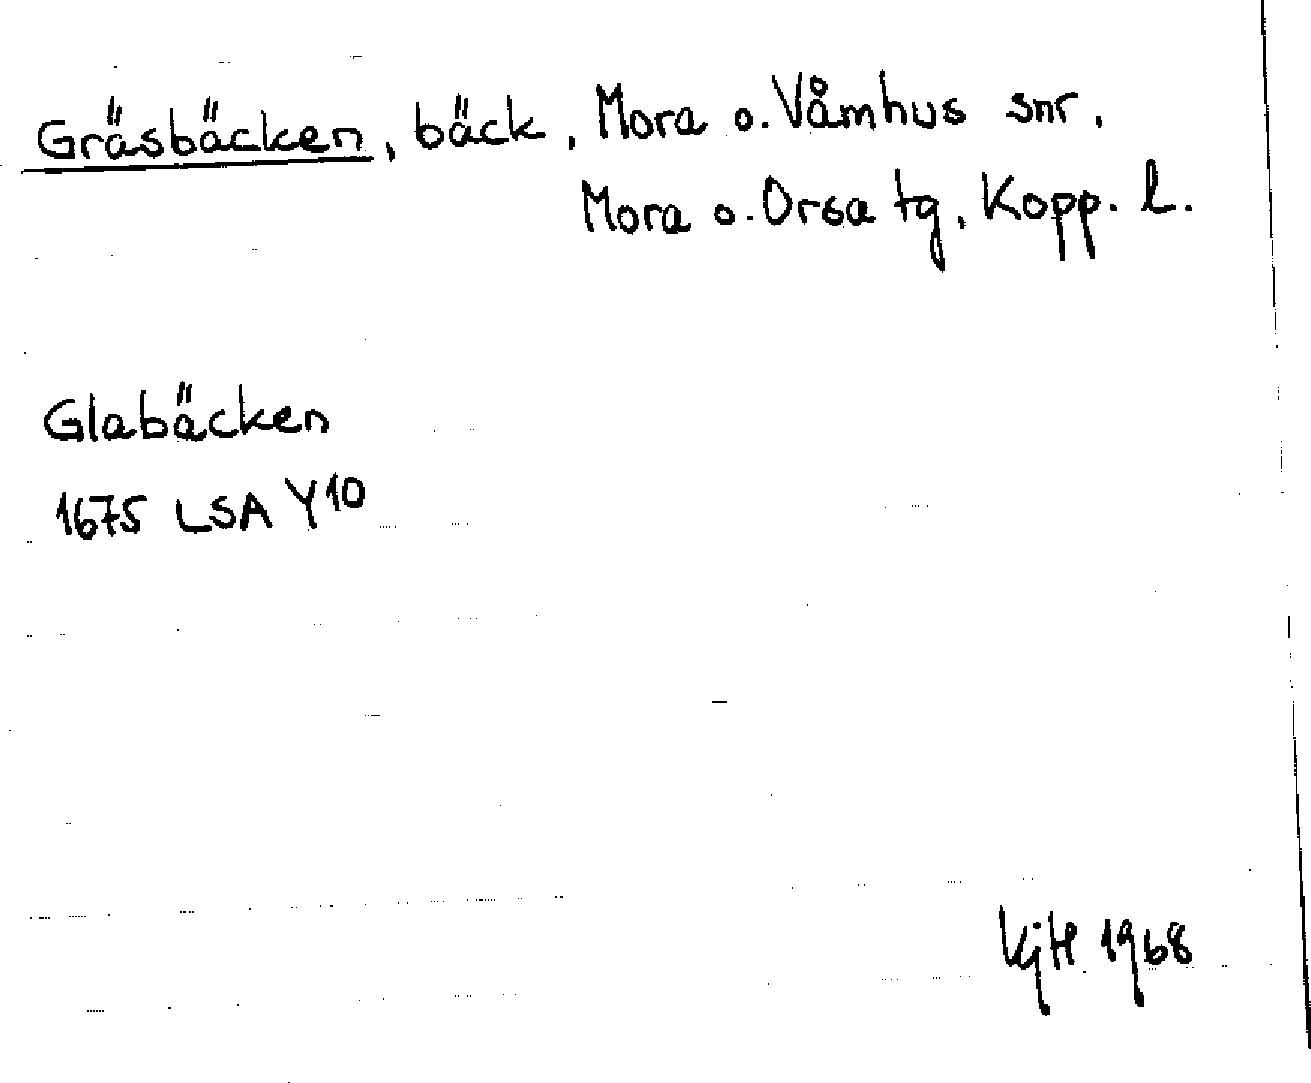 Gräsbäcken, bäck, Mora o. Våmhus snr.
Mora o. Orsa tg, Kopp. l.
Glabäcken
1675 LSA Y10
KjH 1968